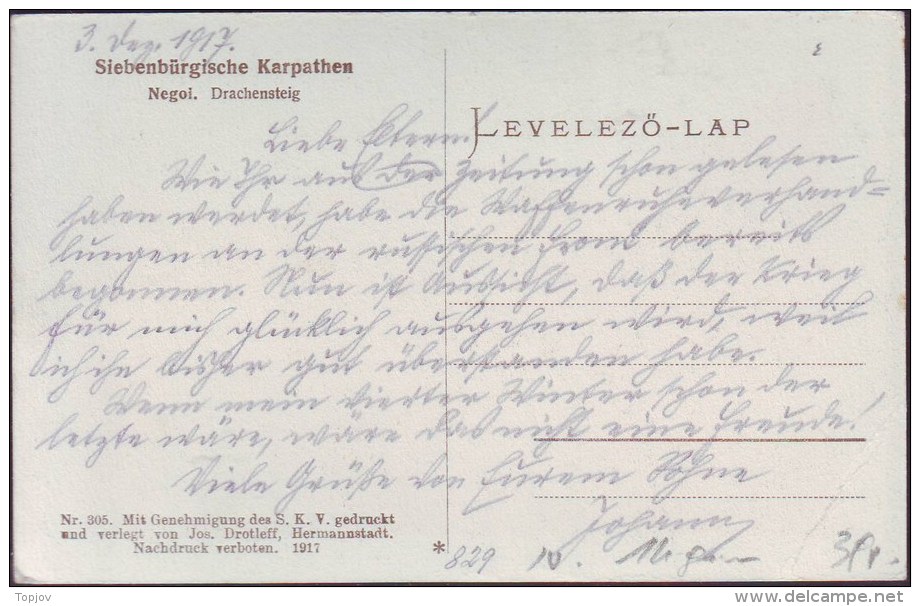 3. Dez. 1917.
Siebenbürgische Karpathen
Negoi. Drachensteig
LEVELEZŐ-LAP
Liebe Eltern!
Wie Ihr aus der Zeitung schon gelesen
haben werdet, habe die Waffenruheverhand=
lungen an der russischen Front bereits
begonnen. Nun ist Aussicht, daß der Krieg
für mich glücklich ausgehen wird, weil
ich ihn bisher gut überstanden habe.
Wenn mein vierter Winter schon der
letzte wäre, wäre das nicht eine Freude!
Viele Grüße von Eurem Sohne
Johann
Nr. 305. Mit Genehmigung des S. K. V. gedruckt
und verlegt von Jos. Drotleff, Hermannstadt.
Nachdruck verboten. 1917
*
829
Topjov
www.delcampe.net